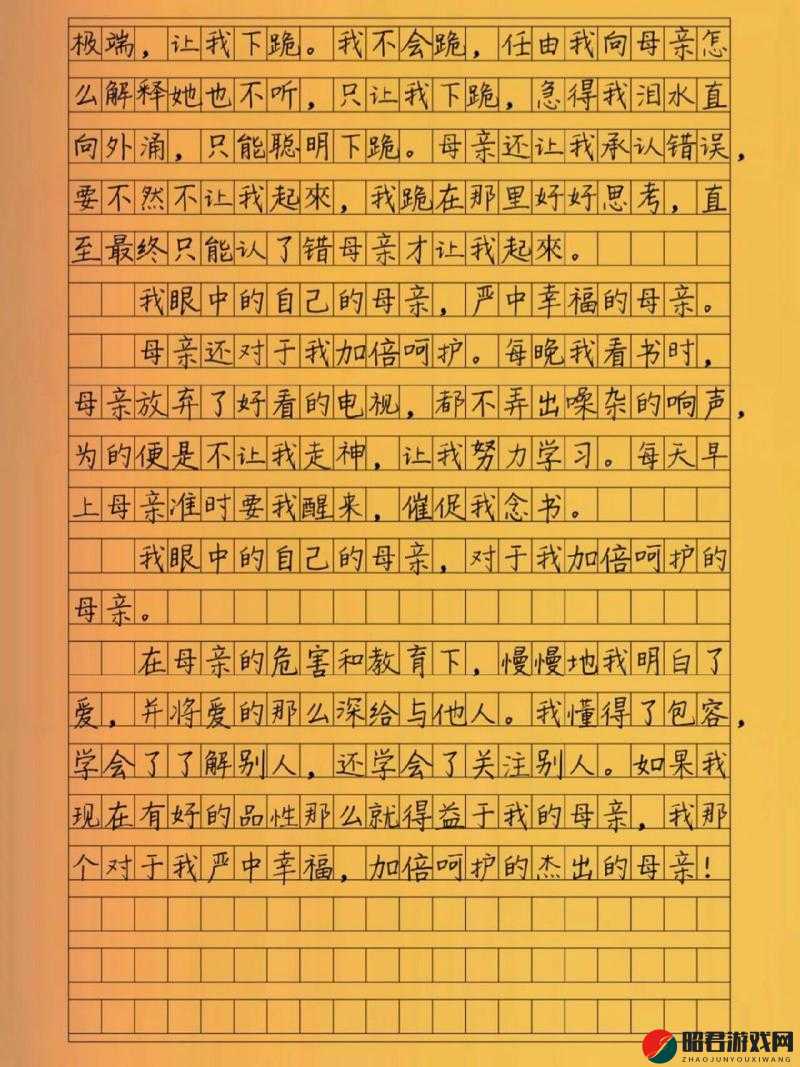 极端，让我下跪。我不会跪，任由我向母亲怎
么解释她也不听，只让我下跪，急得我泪水直
向外涌，只能聪明下跪。母亲还让我承认错误，
要不然不让我起來，我跪在那里好好思考，直
至最终只能认了错母亲才让我起來。
我眼中的自己的母亲，严中幸福的母亲。
母亲还对于我加倍呵护。每晚我看书时，
母亲放弃了好看的电视，都不弄出嗓杂的响声，
为的便是不让我走神，让我努力学习。每天早
上母亲准时要我醒来，催促我念书。
我眼中的自己的母亲，对于我加倍呵护的
母亲。
在母亲的危害和教育下，慢慢地我明白了
爱，并将爱的那么深给与他人。我懂得了包容，
学会了了解别人，还学会了关注别人。如果我
现在有好的品性那么就得益于我的母亲，我那
个对于我严中幸福，加倍呵护的杰出的母亲！
昭君游戏网
ZHAOJUNYOUXIWANG